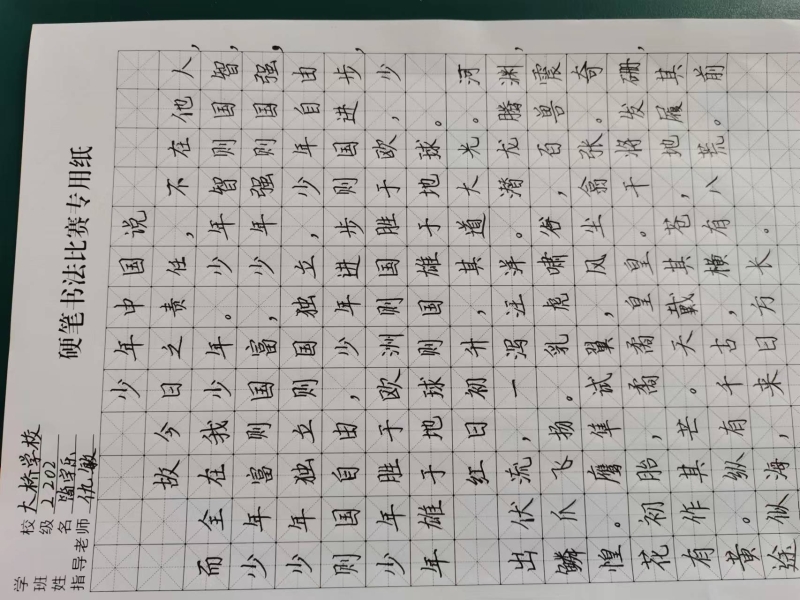 硬笔书法比赛专用纸
学校 大桥学校
班级 2202
姓名
指导老师 仇敏
少年中国说
故今日之责任,不在他人,
而全在我少年。少年智则国智,
少年富则国富,少年强则国强,
少年独立则国独立,少年自由
则国自由,少年进步则国进步,
少年胜于欧洲则国胜于欧,少
年雄于地球则国雄于地球。
红日初升,其道大光。河
出伏流,一泻汪洋。潜龙腾渊,
鳞爪飞扬。乳虎啸谷,百兽震
惶。鹰隼试翼,风尘翕张。奇
花初胎,矞矞皇皇。干将发硎,
有作其芒。天戴其苍,地履其
黄。纵有千古,横有八荒。前
途似海,来日方长。